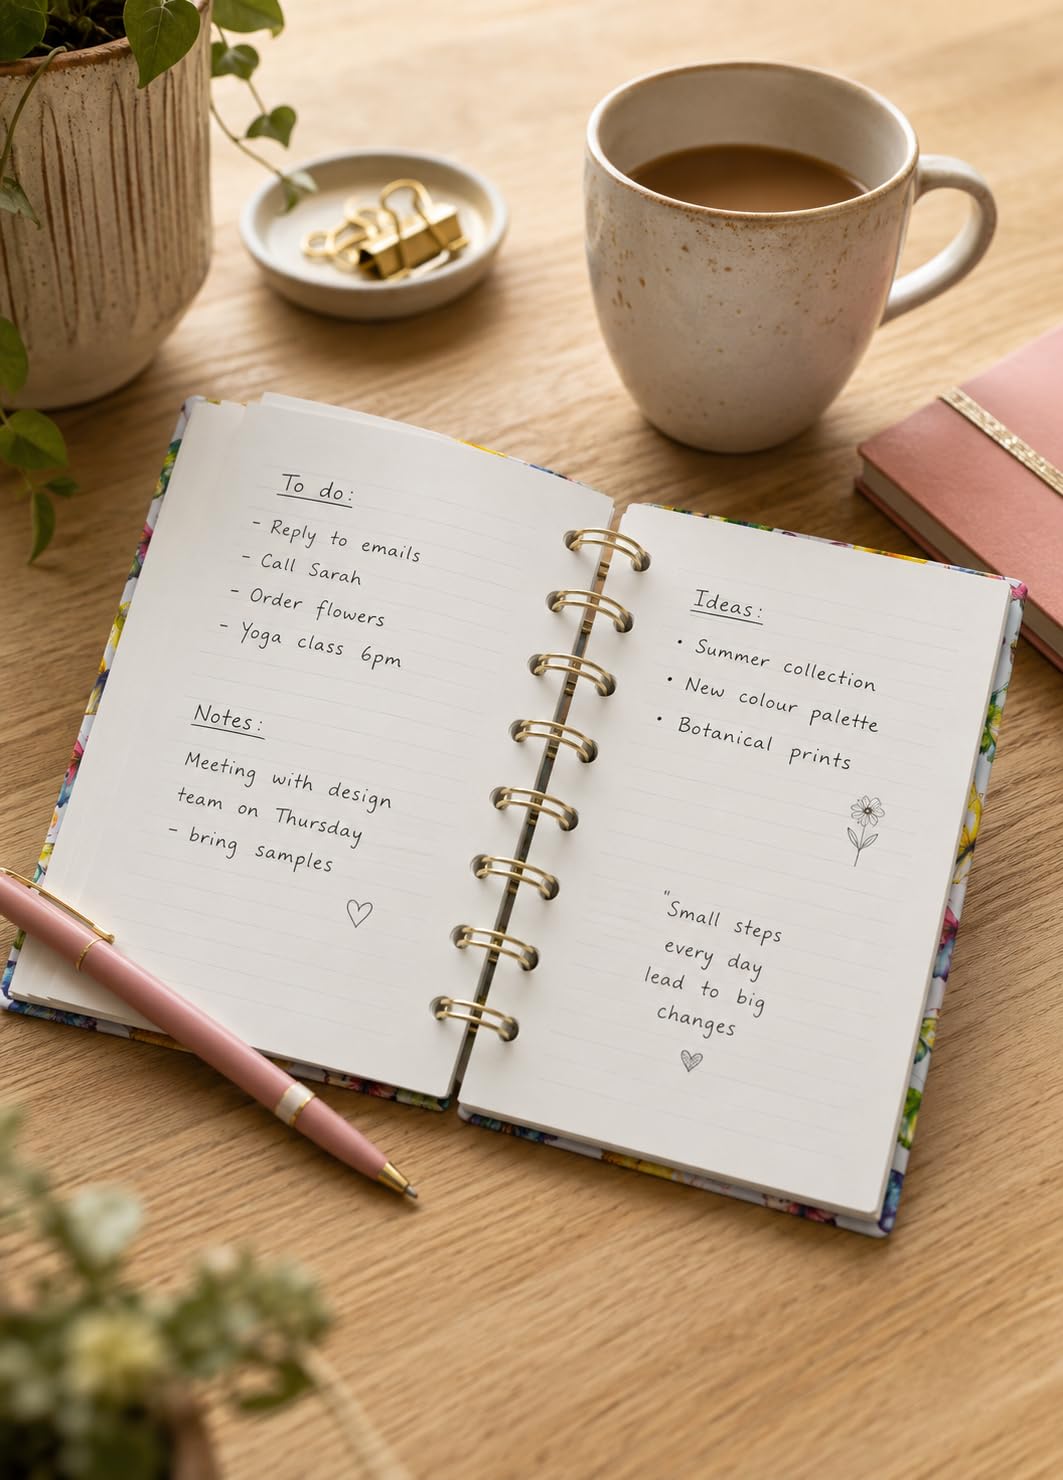 To do:
- Reply to emails
- Call Sarah
- Order flowers
- Yoga class 6pm
Notes:
Meeting with design
team on Thursday
- bring samples
Ideas:
• Summer collection
• New colour palette
• Botanical prints
"Small steps
every day
lead to big
changes